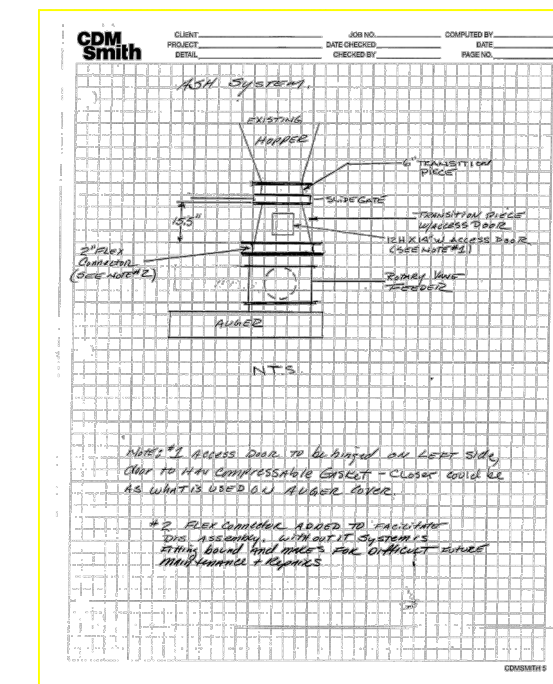 CDM
Smith
CLIENT
PROJECT
DETAIL
JOB NO.
DATE CHECKED
CHECKED BY
COMPUTED BY
DATE
PAGE NO.
ASH SYSTEM.
EXISTING
HOPPER
6" TRANSITION
PIECE
SLIDE GATE
15.5"
TRANSITION PIECE
W/ACCESS DOOR
12H X 14"W ACCESS DOOR
(SEE NOTE #1)
2" FLEX
CONNECTOR
(SEE NOTE #2)
ROTARY VANE
FEEDER
AUGER
N.T.S.
Note: #1 ACCESS DOOR TO be hinged ON LEFT Side,
door to Have Compressable GASKET - Closer could be
AS WHAT IS USED ON AUGER COVER.
#2 FLEX CONNECTOR ADDED TO FACILITATE
DIS. ASSEMBLY. WITHOUT IT SYSTEM IS
Fitting bound And makes FOR DIFFICULT FUTURE
MAINTENANCE + Repairs
CDMSMITH 5